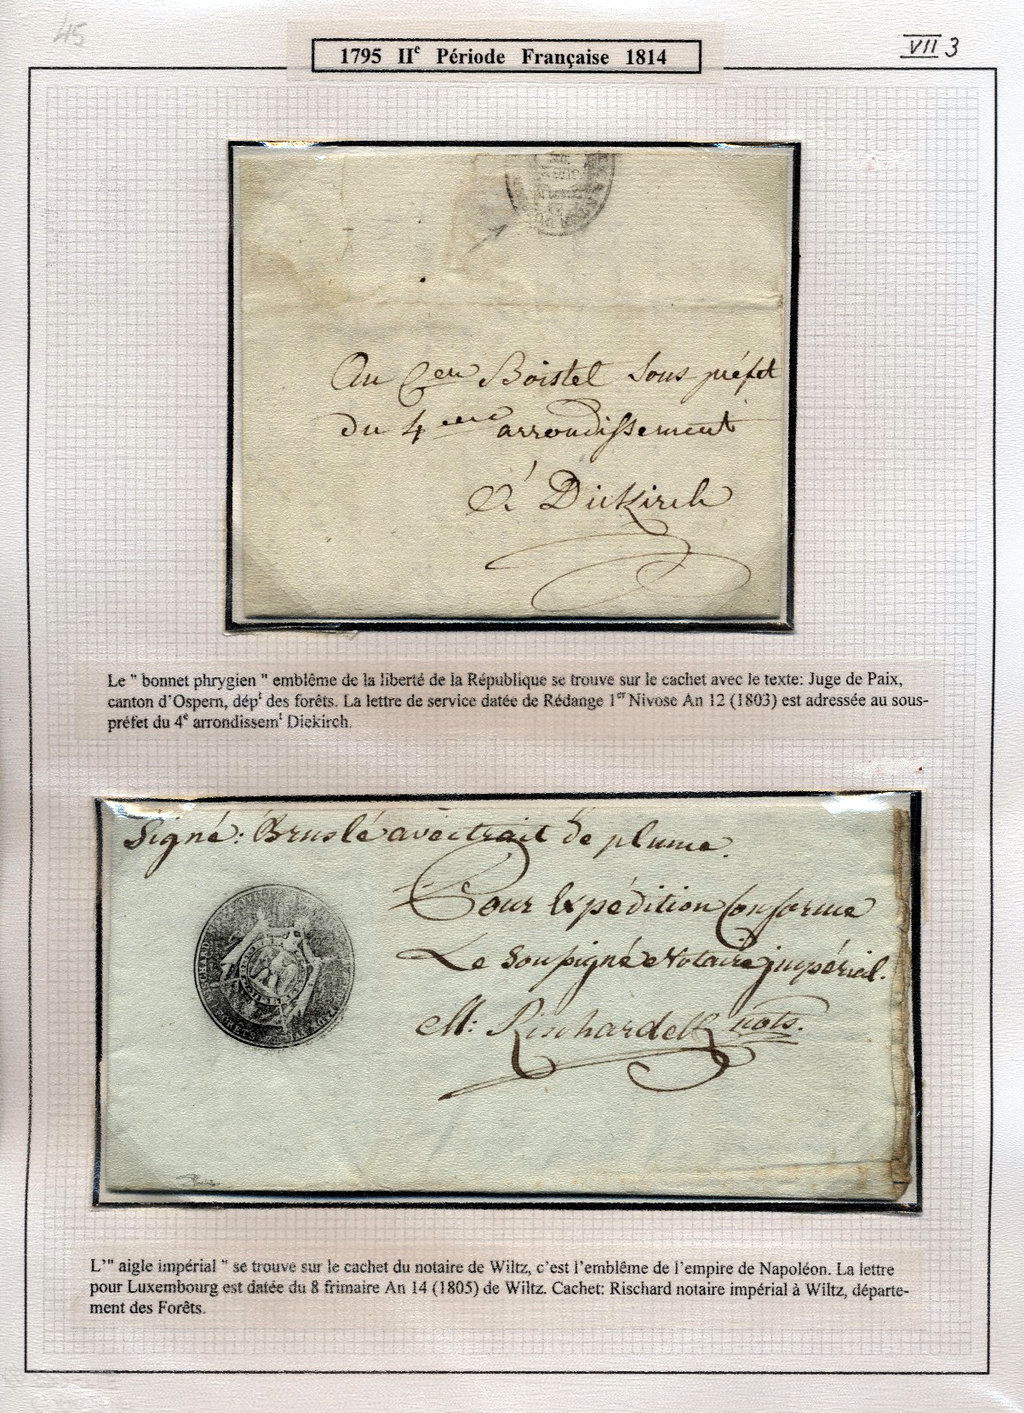 45
VII 3
1795 IIe Période Française 1814
Au Cen Boistel Sous préfet
du 4eme arrondissement
à Diekirch
Le " bonnet phrygien " emblême de la liberté de la République se trouve sur le cachet avec le texte: Juge de Paix,
canton d'Ospern, dépt des forêts. La lettre de service datée de Rédange 1er Nivose An 12 (1803) est adressée au sous-
préfet du 4e arrondissemt Diekirch.
Signé: Bruslé avec trait de plume.
Pour Expédition Conforme
Le Soussigné Notaire impérial.
M: Rischardell nots.
L'" aigle impérial " se trouve sur le cachet du notaire de Wiltz, c'est l'emblême de l'empire de Napoléon. La lettre
pour Luxembourg est datée du 8 frimaire An 14 (1805) de Wiltz. Cachet: Rischard notaire impérial à Wiltz, départe-
ment des Forêts.